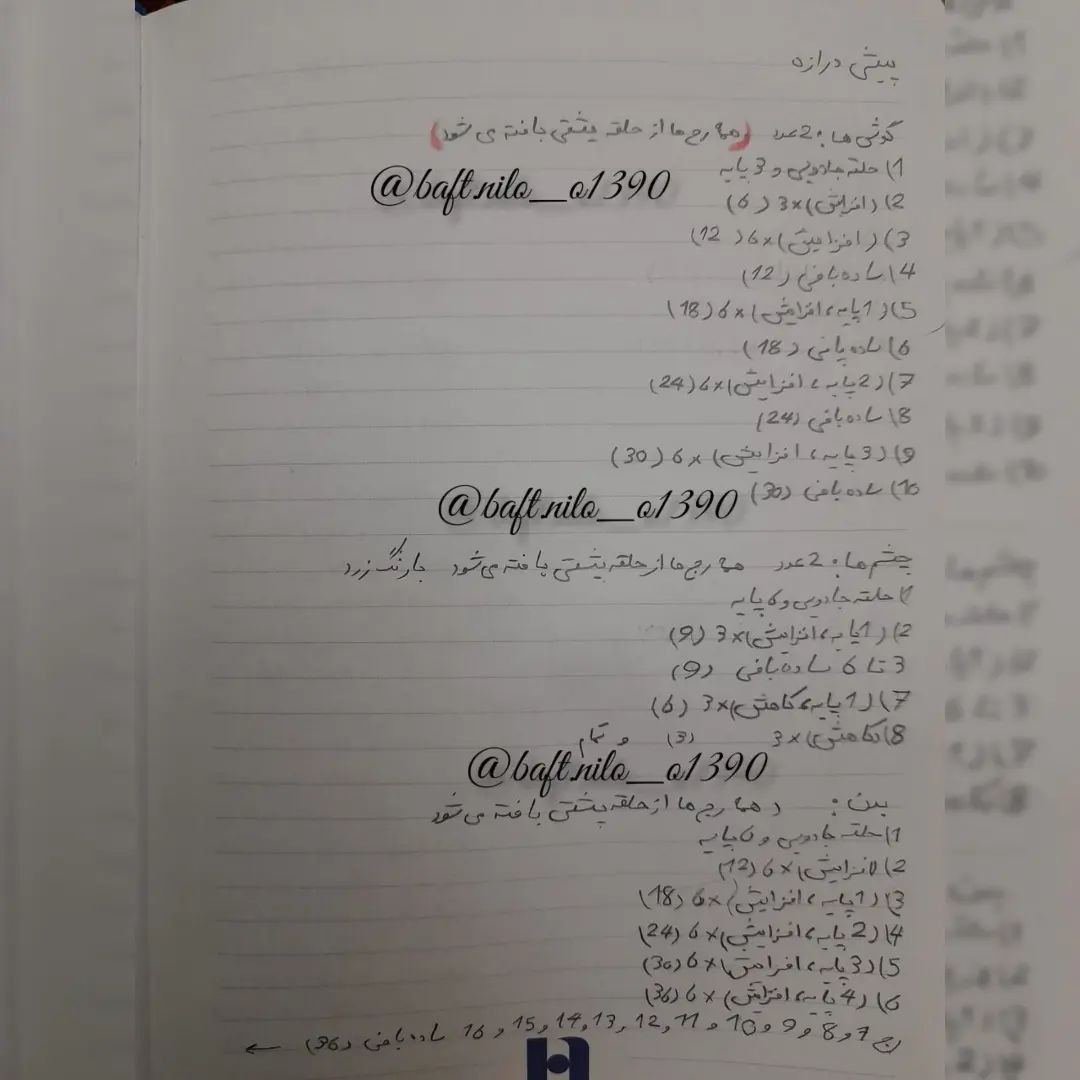 پیش درازه
گوش ها: 2 عدد (همه رج ها از حلقه پشتی بافته می شود)
1) حلقه جادویی و 3 پایه
@baft.nilo__o1390
2) (افزایش) × 3 (6)
3) (افزایش) × 6 (12)
4) ساده بافی (12)
5) (1 پایه، افزایش) × 6 (18)
6) ساده بافی (18)
7) (2 پایه، افزایش) × 6 (24)
8) ساده بافی (24)
9) (3 پایه، افزایش) × 6 (30)
10) ساده بافی (30)
@baft.nilo__o1390
چشم ها: 2 عدد همه رج ها از حلقه پشتی بافته می شود با رنگ زرد
1) حلقه جادویی و 6 پایه
2) (1 پایه، افزایش) × 3 (9)
3 تا 6 ساده بافی (9)
7) (1 پایه، کاهش) × 3 (6)
8) (کاهش) × 3 (3) و تمام
@baft.nilo__o1390
بدن: همه رج ها از حلقه پشتی بافته می شود
1) حلقه جادویی و 6 پایه
2) (افزایش) × 6 (12)
3) (1 پایه، افزایش) × 6 (18)
4) (2 پایه، افزایش) × 6 (24)
5) (3 پایه، افزایش) × 6 (30)
6) (4 پایه، افزایش) × 6 (36)
رج 7 و 8 و 9 و 10 و 11 و 12 و 13 و 14 و 15 و 16 ساده بافی (36) ←